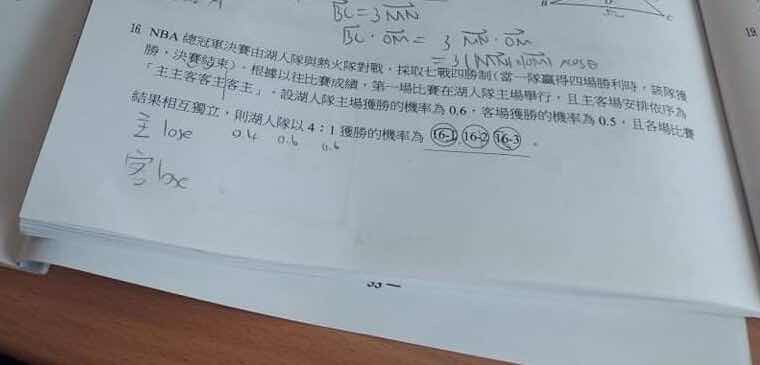 BC = 3 MN
BC · OM = 3 MN · OM
= 3 |MN| |OM| cosθ
16. NBA 總冠軍決賽由湖人隊與熱火隊對戰,採取七戰四勝制(當一隊贏得四場勝利時,該隊獲
勝,決賽結束)。根據以往比賽成績,第一場比賽在湖人隊主場舉行,且主客場安排依序為
「主主客客主客主」。設湖人隊主場獲勝的機率為 0.6,客場獲勝的機率為 0.5,且各場比賽
結果相互獨立,則湖人隊以 4:1 獲勝的機率為 16-1 . 16-2 16-3 。
主 lose 0.4 0.6 0.6
客 lose
19.